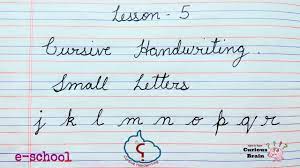 Lesson - 5
Cursive Handwriting.
Small Letters
j k l m n o p q r
e-school
Curious
Brain